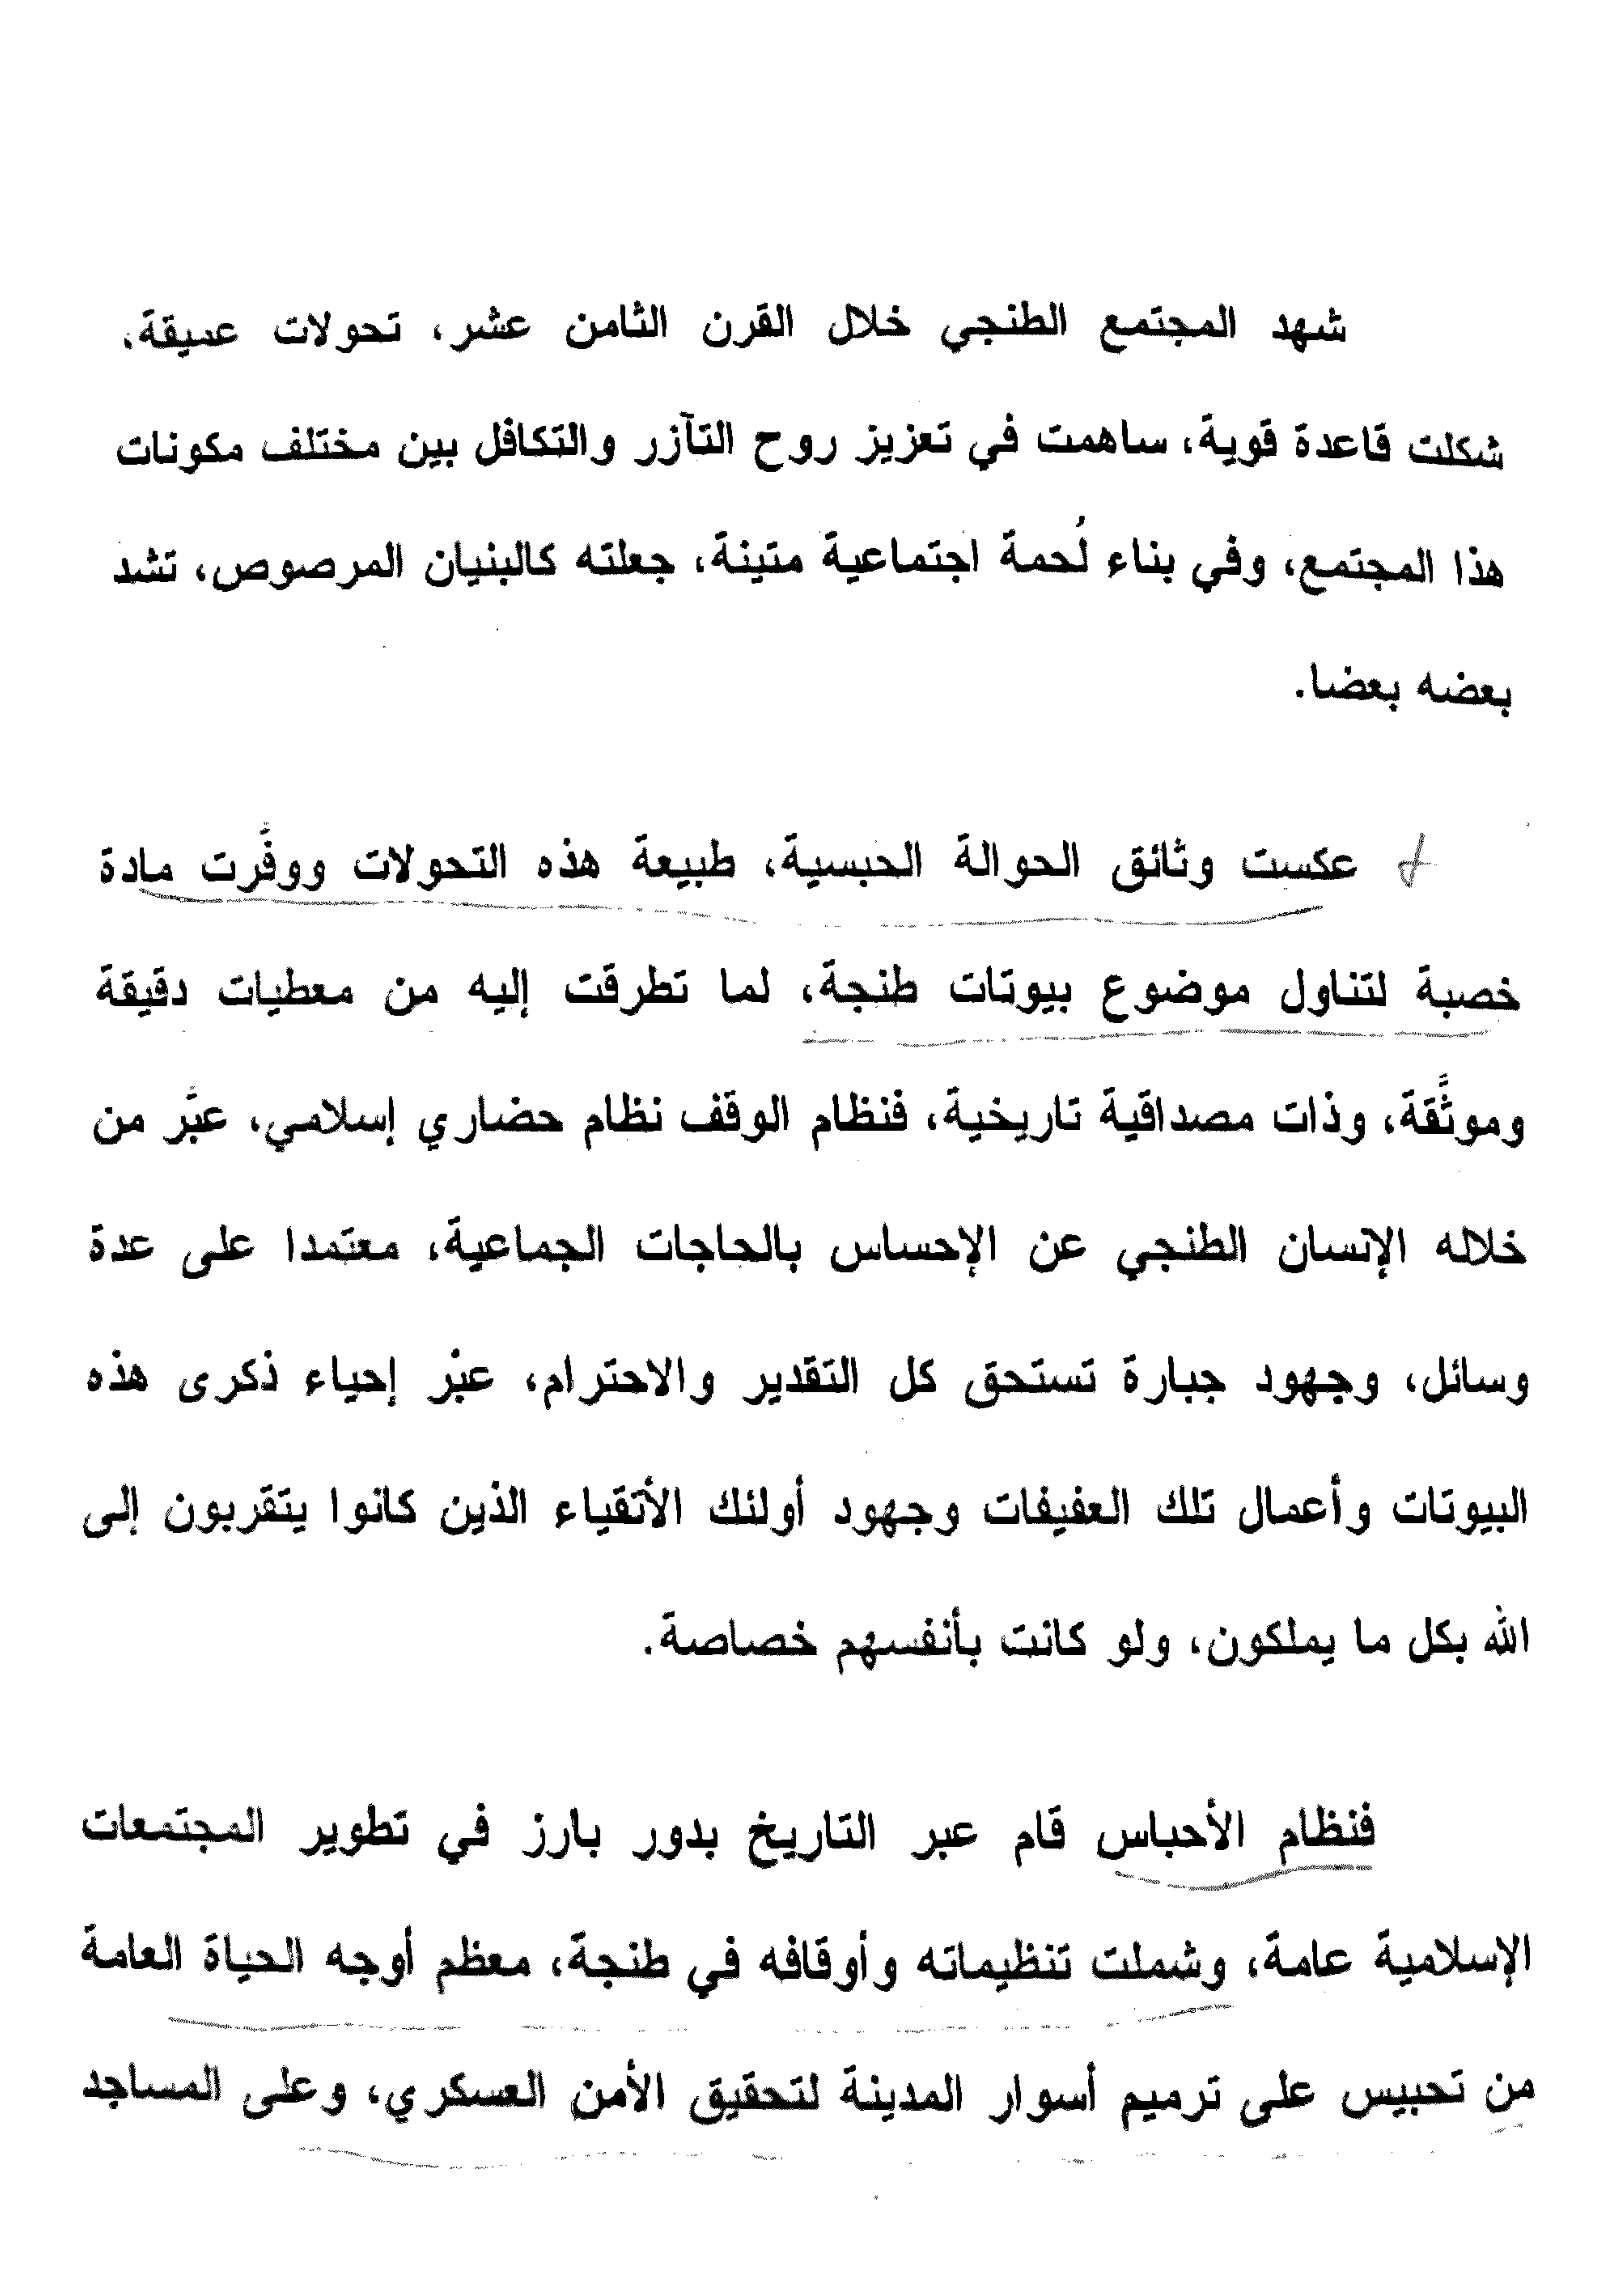 شهد المجتمع الطنجي خلال القرن الثامن عشر، تحولات عميقة،
شكلت قاعدة قوية، ساهمت في تعزيز روح التآزر والتكافل بين مختلف مكونات
هذا المجتمع، وفي بناء لُحمة اجتماعية متينة، جعلته كالبنيان المرصوص، تشد
بعضه بعضا.
عكست وثائق الحوالة الحبسية، طبيعة هذه التحولات ووفَّرت مادة
خصبة لتناول موضوع بيوتات طنجة، لما تطرقت إليه من معطيات دقيقة
وموثَّقة، وذات مصداقية تاريخية، فنظام الوقف نظام حضاري إسلامي، عبَّر من
خلاله الإنسان الطنجي عن الإحساس بالحاجات الجماعية، معتمدا على عدة
وسائل، وجهود جبارة تستحق كل التقدير والاحترام، عبْر إحياء ذكرى هذه
البيوتات وأعمال تلك العفيفات وجهود أولئك الأتقياء الذين كانوا يتقربون إلى
الله بكل ما يملكون، ولو كانت بأنفسهم خصاصة.
فنظام الأحباس قام عبر التاريخ بدور بارز في تطوير المجتمعات
الإسلامية عامة، وشملت تنظيماته وأوقافه في طنجة، معظم أوجه الحياة العامة
من تحبيس على ترميم أسوار المدينة لتحقيق الأمن العسكري، وعلى المساجد